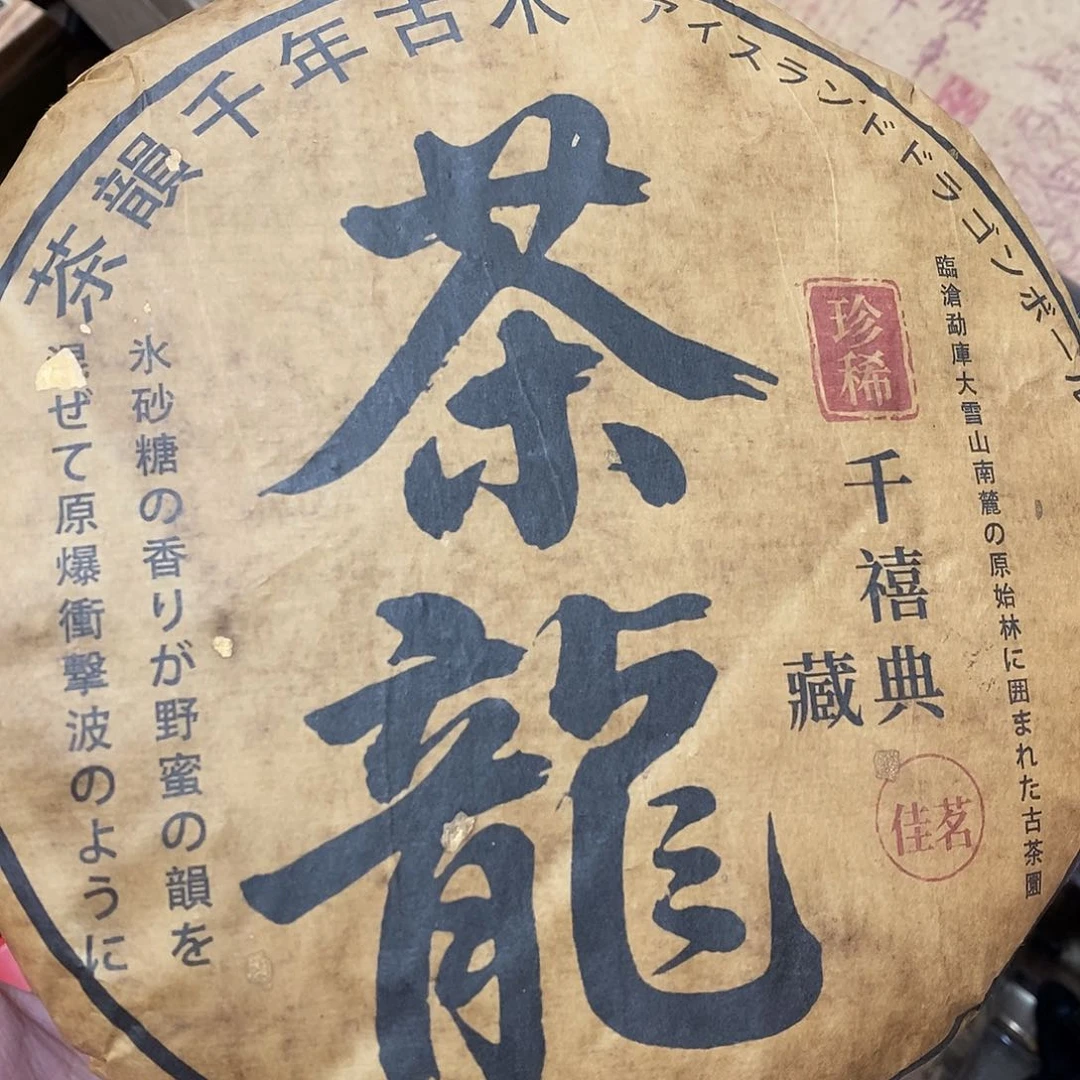 茶韻千年古木
アイスランドドラゴンボール
茶龍
珍稀
千禧典藏
佳茗
臨滄勐庫大雪山南麓の原始林に囲まれた古茶園
氷砂糖の香りが野蜜の韻を
混ぜて原爆衝撃波のように